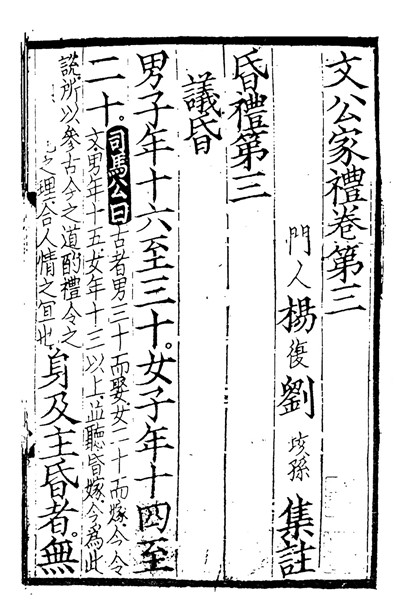 文公家禮卷第三
門人楊復劉垓孫集註
昏禮第三
議昏
男子年十六至三十。女子年十四至
二十。司馬公曰
古者男三十而娶女二十而嫁今令
文男年十五女年十三以上並聽昏嫁今為此
說所以參古今之道酌禮令之
之理合人情之宜也
身及主昏者。無